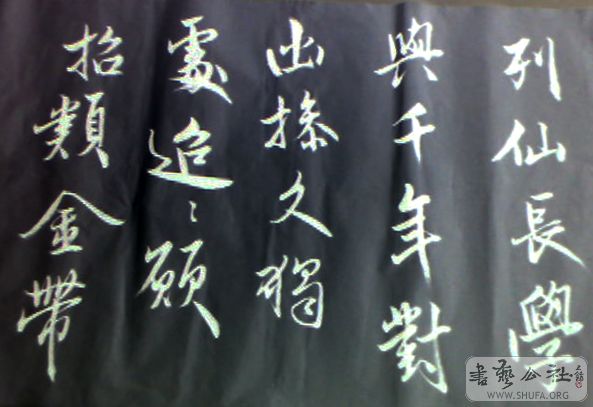 列仙長學
與千年對
幽操久獨
處迢〻願
招類金帶
書藝公社
WWW.SHUFA.ORG